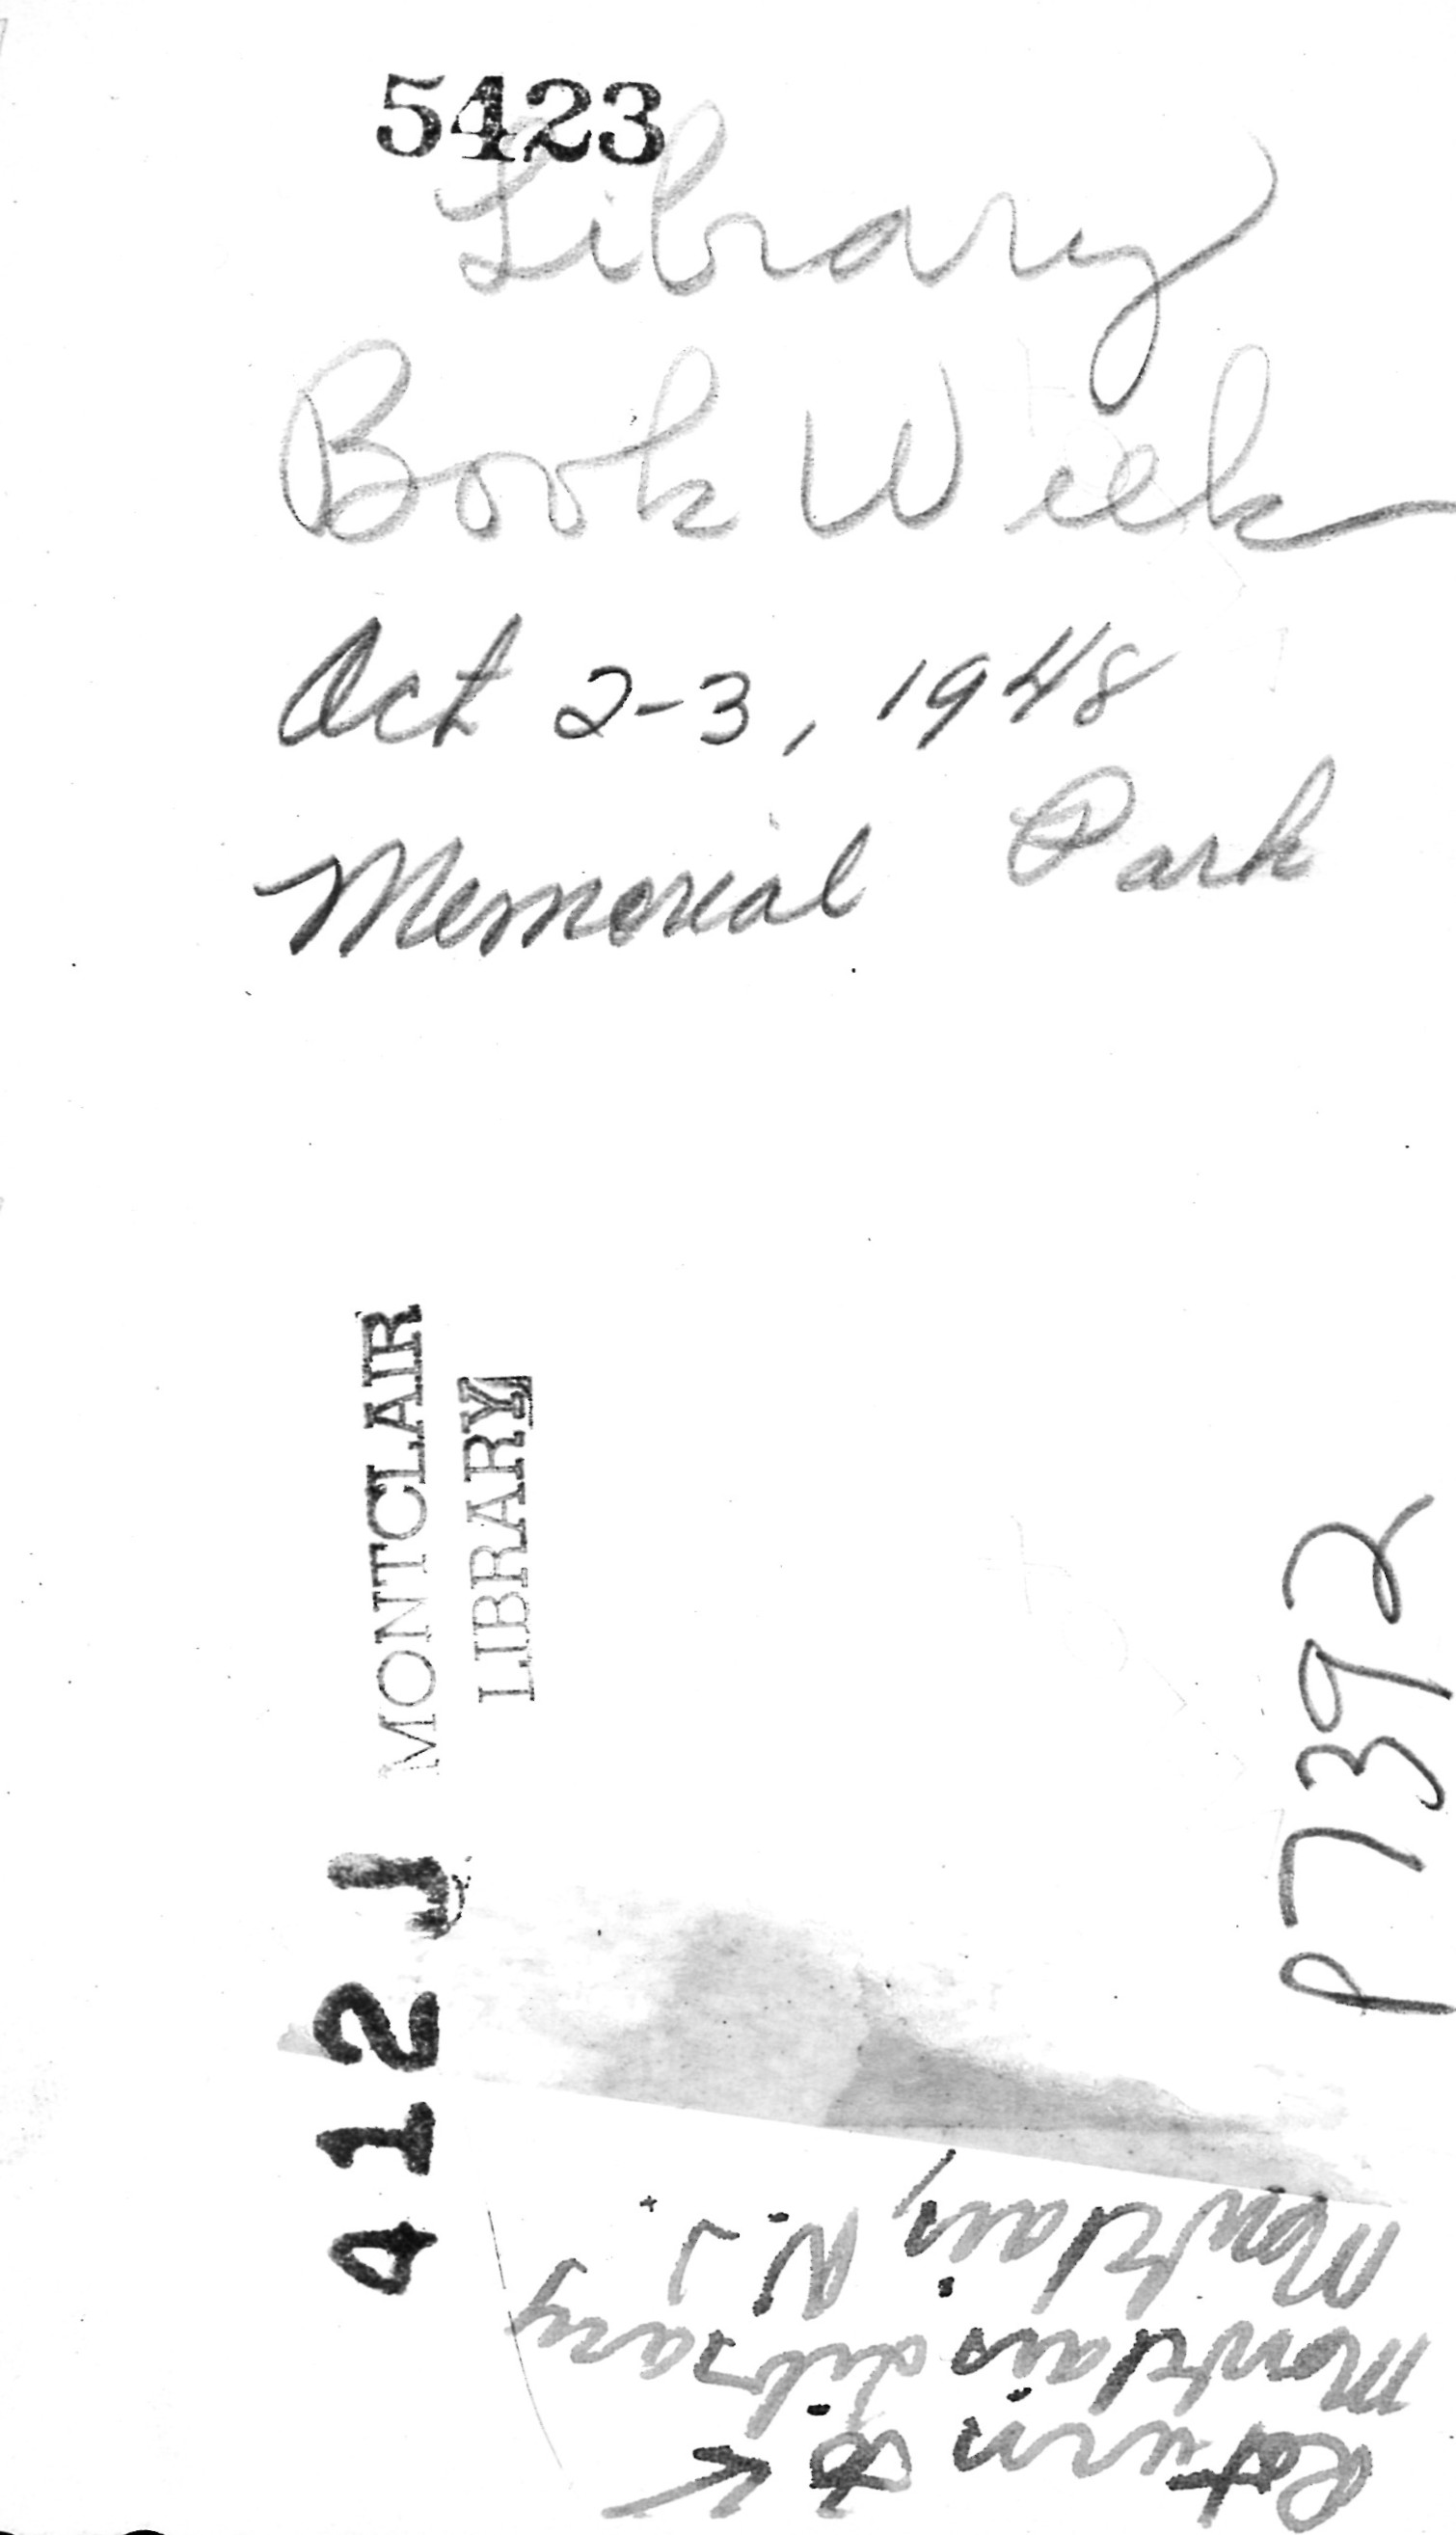 5423
Library
Book Week
Oct 2-3, 1948
Memorial Park
MONTCLAIR
LIBRARY
412J
P7392
Return to
Montclair Library
Montclair, N.J.